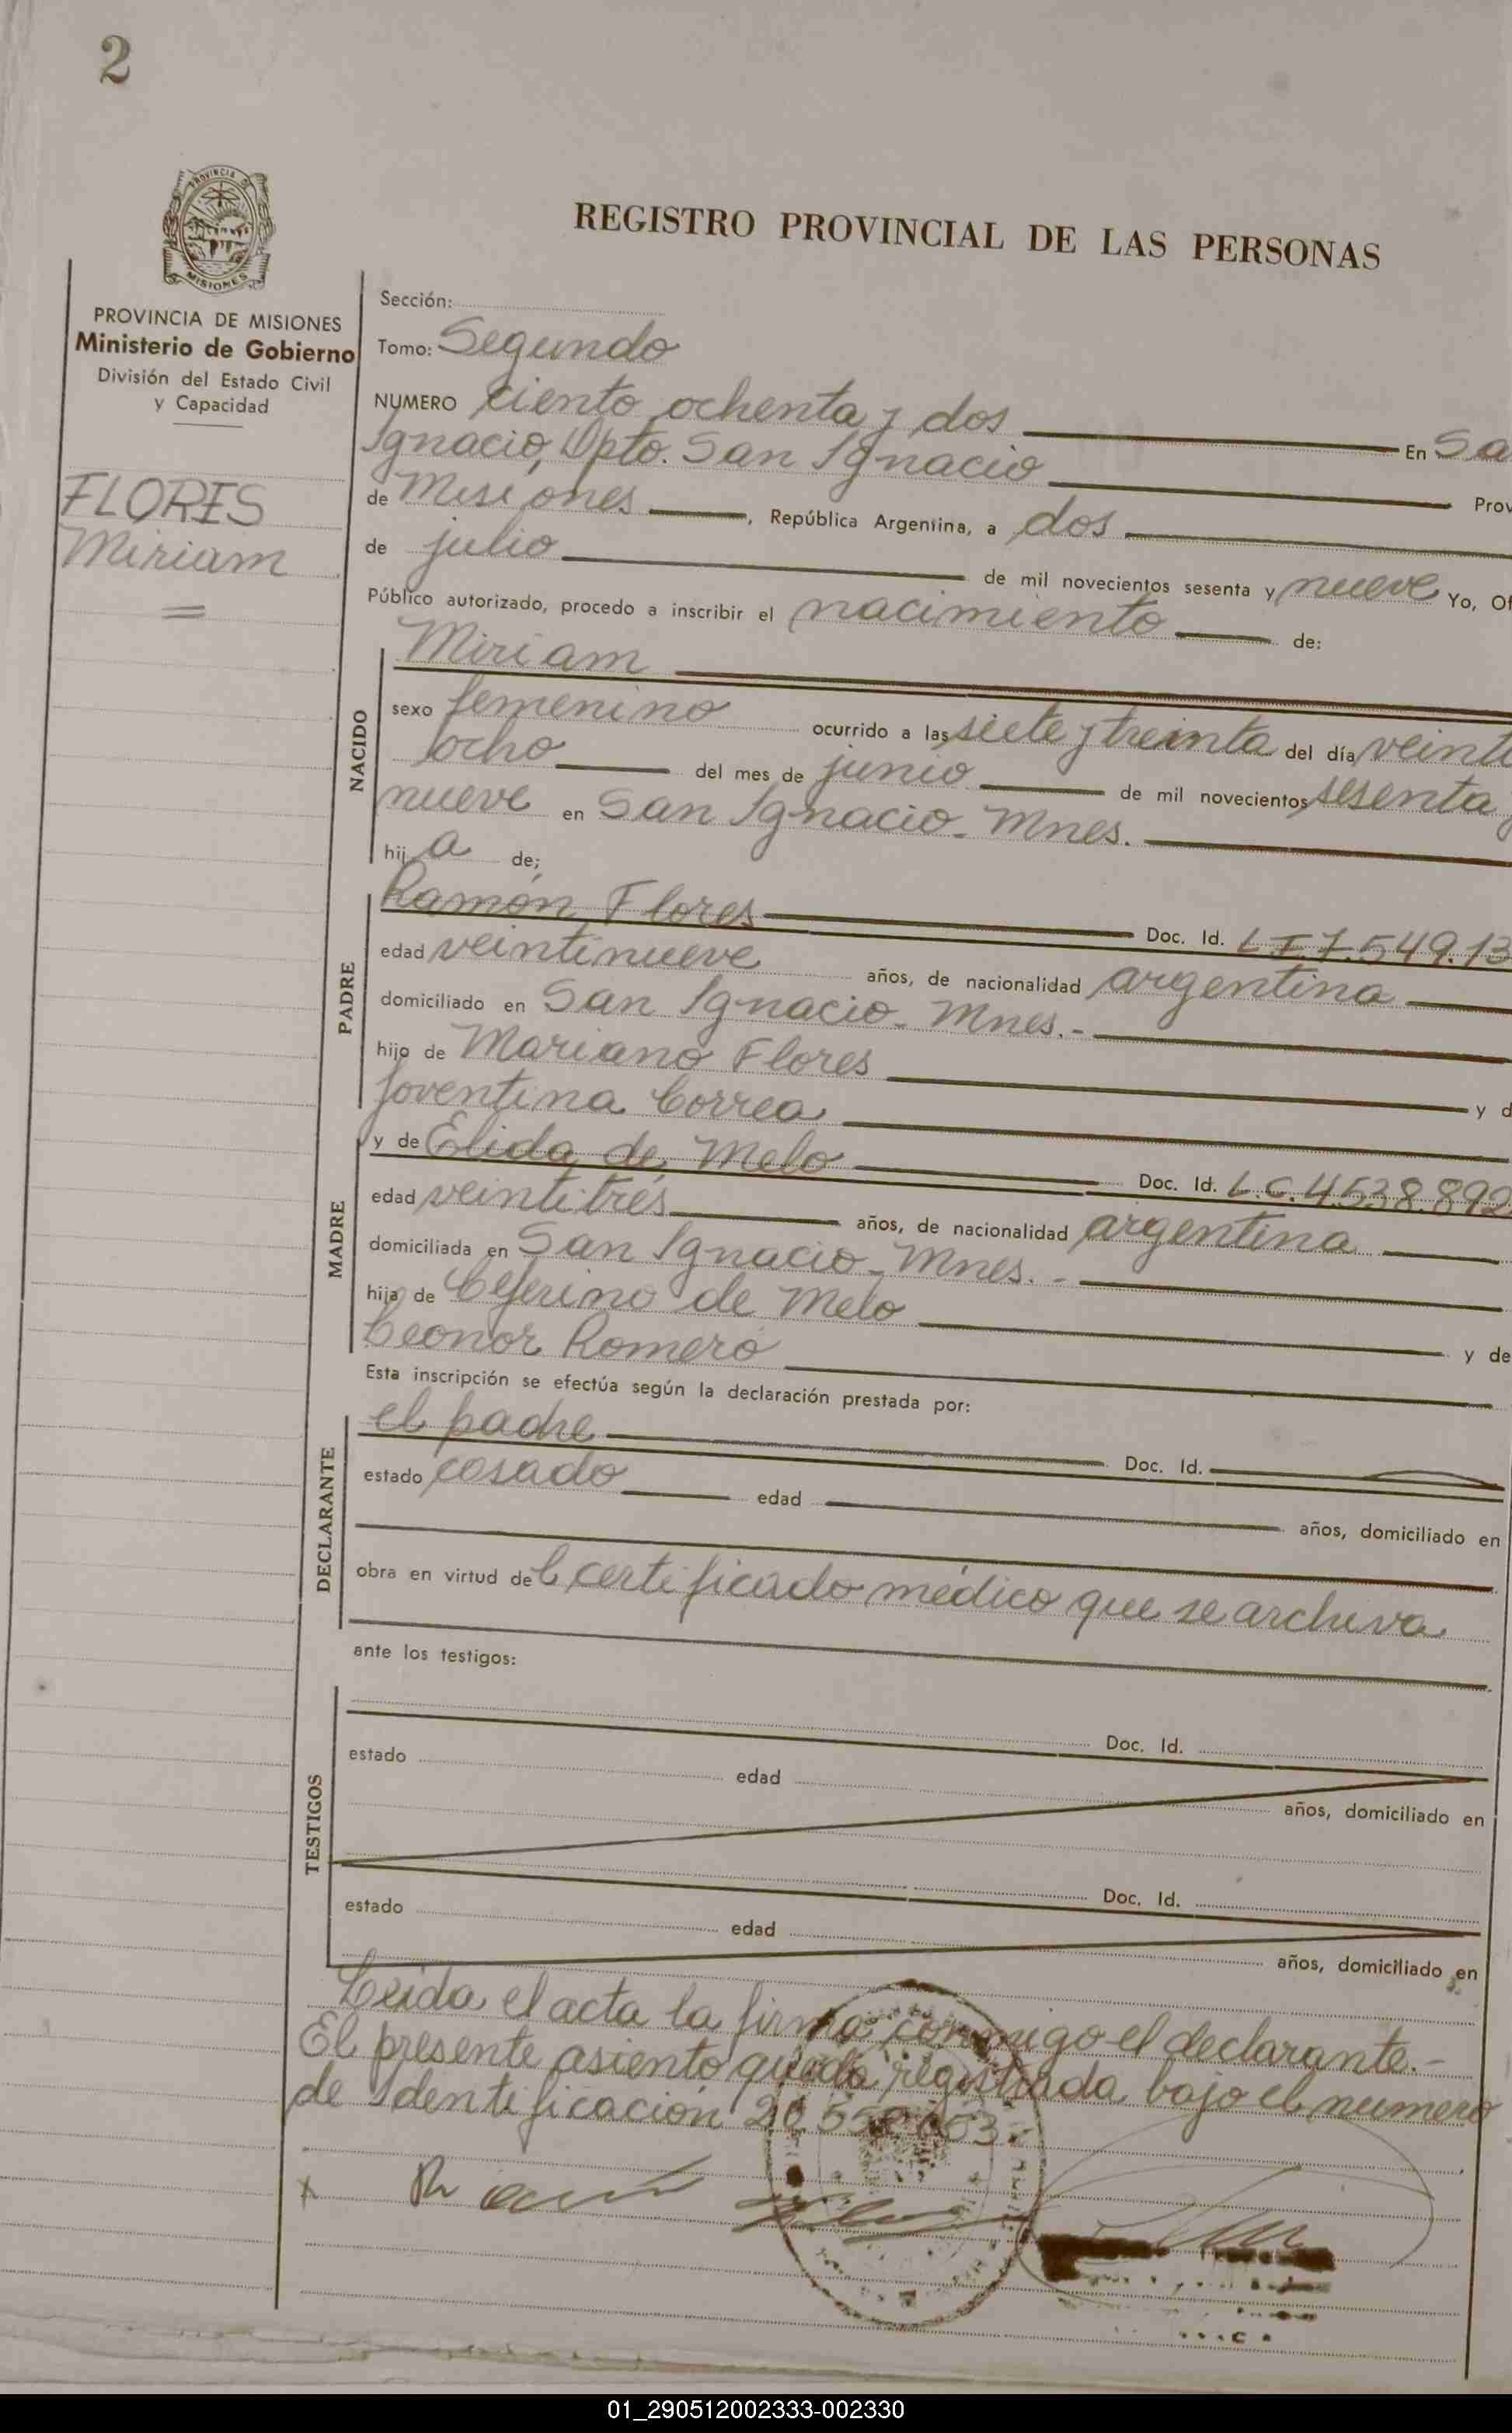 2
PROVINCIA DE MISIONES
REGISTRO PROVINCIAL DE LAS PERSONAS
PROVINCIA DE MISIONES
Ministerio de Gobierno
División del Estado Civil
y Capacidad
FLORES
Miriam
Sección:
Tomo: Segundo
NUMERO ciento ochenta y dos En Sa
Ignacio, Dpto. San Ignacio Prov
de Misiones, República Argentina, a dos
de julio de mil novecientos sesenta y nueve Yo, Of
Público autorizado, procedo a inscribir el nacimiento de:
NACIDO
Miriam
sexo femenino ocurrido a las siete y treinta del día veinti
ocho del mes de junio de mil novecientos sesenta y
nueve en San Ignacio - Mnes.
hija de;
PADRE
Ramón Flores Doc. Id. L.I.7.549.13
edad veintinueve años, de nacionalidad argentina
domiciliado en San Ignacio - Mnes. -
hijo de Mariano Flores y d
Joventina Correa
MADRE
y de Elida de Melo Doc. Id. L.C.4.538.892
edad veintitrés años, de nacionalidad argentina
domiciliada en San Ignacio - Mnes. -
hija de Ceferino de Melo y de
Leonor Romero
Esta inscripción se efectúa según la declaración prestada por:
DECLARANTE
el padre Doc. Id.
estado casado edad años, domiciliado en
obra en virtud del certificado médico que se archiva
ante los testigos:
TESTIGOS
Doc. Id.
estado edad
años, domiciliado en
Doc. Id.
estado edad
años, domiciliado en
Leída el acta la firma conmigo el declarante.-
El presente asiento queda registrada bajo el numero
de Identificación
x Ramón Flores
01_290512002333-002330